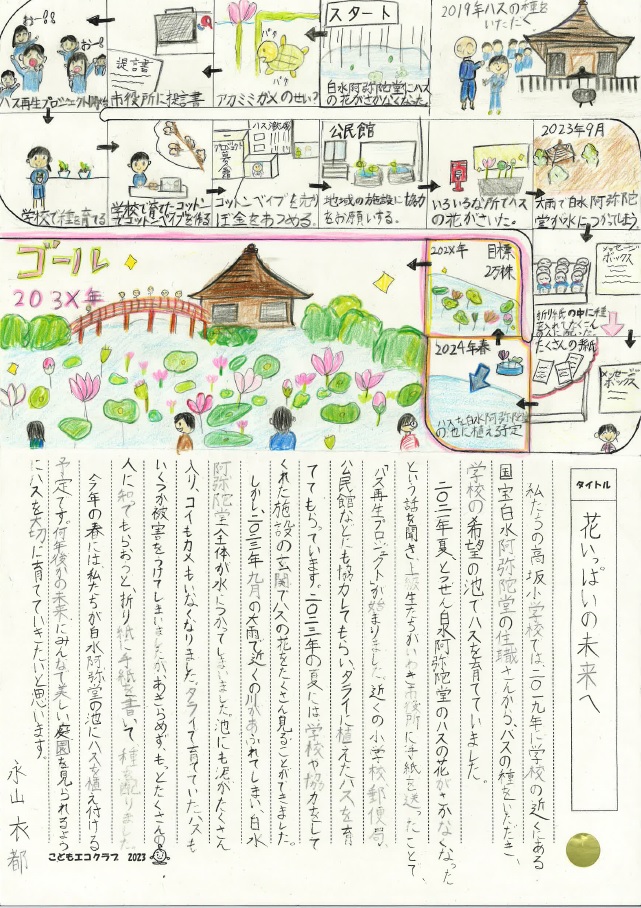 2019年ハスの種をいただく
スタート
白水阿弥陀堂にハスの花がさかなくなった
アカミミガメのせい?
パク
パク
提言書
市役所に提言書
おー!!
おー!!
ハス再生プロジェクト開始
学校で種を育てる
学校で育てたコットンでコットンベイブを作る
コットンベイブを売りぼ金をあつめる。
公民館
地域の施設に協力をお願いする。
いろいろな所でハスの花がさいた。
2023年9月
大雨で白水阿弥陀堂が水につかってしまう
メッセージボックス
折り紙の中に種を入れてたくさんの人に配った。
たくさんの手紙
メッセージボックス
2024年春
ハスを白水阿弥陀堂の池に植える予定
202X年 目標 2万株
ゴール
203X年
タイトル
花いっぱいの未来へ
私たちの高坂小学校では、二〇一九年に学校の近くにある
国宝白水阿弥陀堂の住職さんから、ハスの種をいただき、
学校の希望の池でハスを育てていました。
二〇二一年夏、とつぜん白水阿弥陀堂のハスの花がさかなくなった
という話を聞き、上級生たちがいわき市役所に手紙を送ったことで、
ハス再生プロジェクトが始まりました。近くの小学校、郵便局、
公民館などにも協力してもらい、タライに植えたハスを育
ててもらっています。二〇二三年の夏には学校や協力をして
くれた施設の玄関でハスの花をたくさん見ることができました。
しかし、二〇二三年九月の大雨で近くの川があふれてしまい、白水
阿弥陀堂全体が水につかってしまいました。池にも泥がたくさん
入り、コイもカメもいなくなりました。タライで育てていたハスも
いくつか被害をうけてしまいましたが、あきらめず、もっとたくさんの
人に知ってもらおうと、折り紙に手紙を書いて、種を配りました。
今年の春には、私たちが白水阿弥堂の池にハスを植え付ける
予定です。何年後かの未来にみんなで美しい庭園を見られるよう
にハスを大切に育てていきたいと思います。
永山衣都
こどもエコクラブ 2023